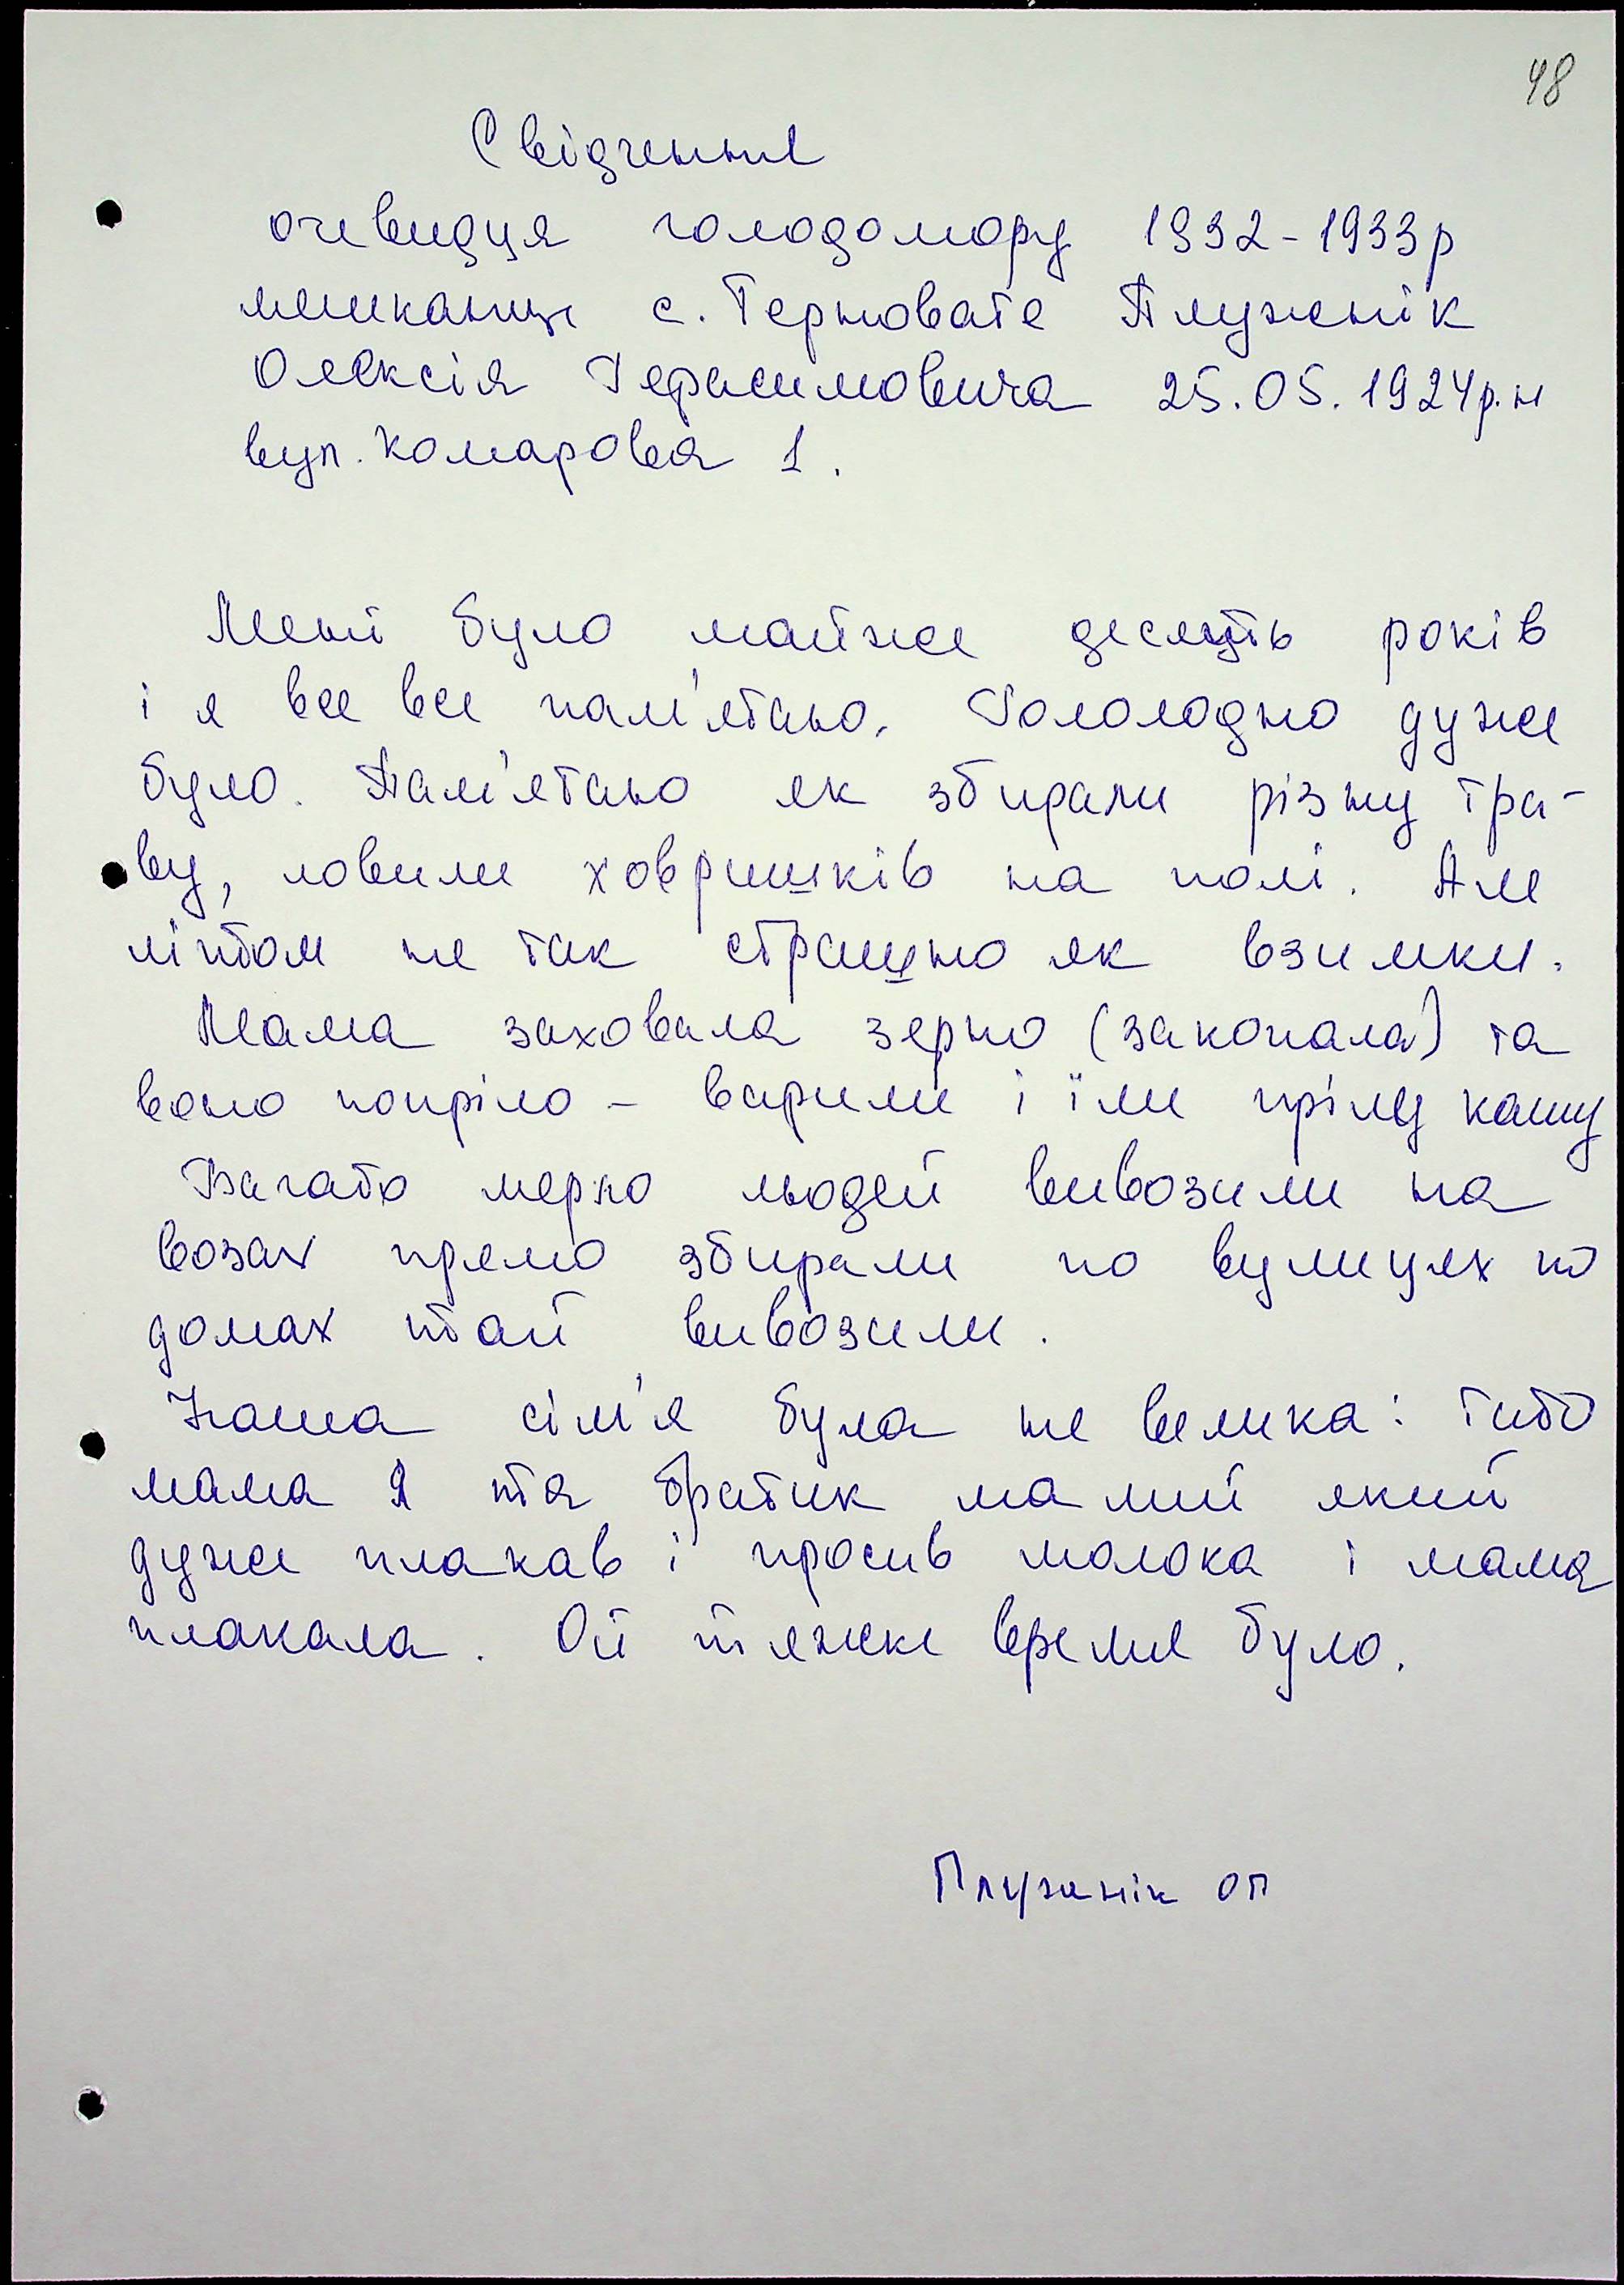 48
Свідчення
очевидця голодомору 1932-1933р
мешканця с. Терновате Плуженік
Олексія Герасимовича 25.05.1924р.н
вул. Комарова 1.
Мені було майже десять років
і я все все пам'ятаю. Гололодно дуже
було. Пам'ятаю як збирали різну тра-
ву, ловили ховришків на полі. Але
літом не так страшно як взимку.
Мама заховала зерно (закопала) та
воно попріло - варили і їли прілу кашу
Багато мерло людей вивозили на
возах прямо збирали по вулицях по
домах тай вивозили.
Наша сім'я була не велика: тато
мама я та братик малий який
дуже плакав і просив молока і мама
плакала. Ой тяжке время було.
Плуженік ОП